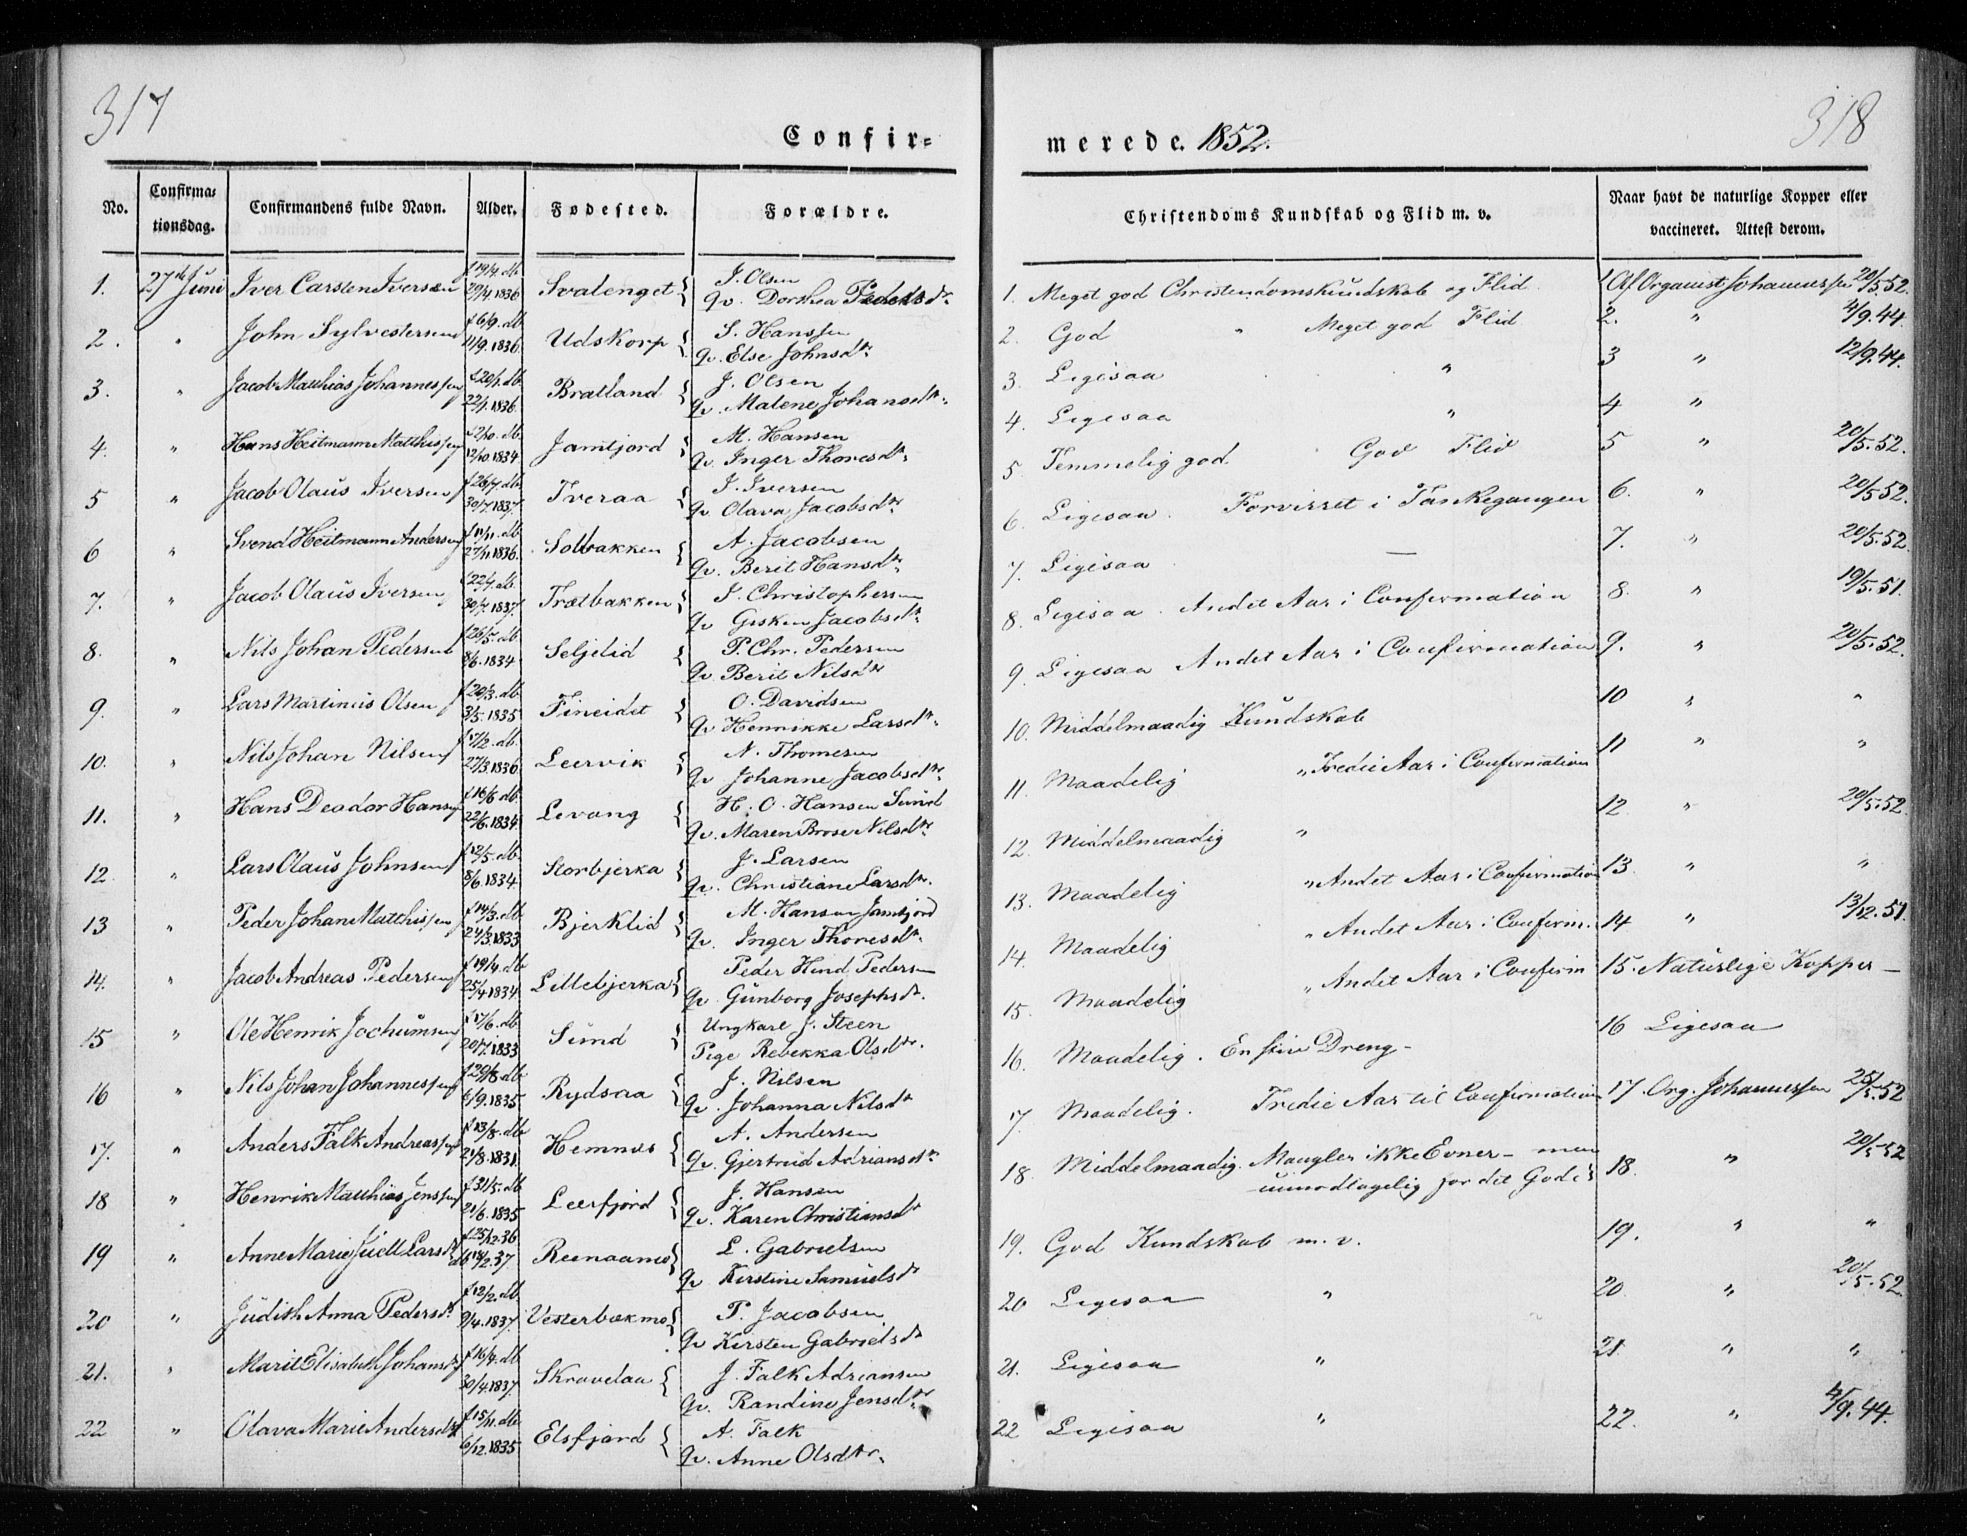 317
Confir=
No.
Confirma=
tionsdag.
Confirmandens fulde Navn.
Alder.
Fødested.
Forældre.
1. 27de Juni Iver Carsten Iversen f 19/4. db 20/4 1836 Svalenget { J. Olsen
Qv. Dorthea Pedersdr.
2. " John Sylvestersen f 6/9. db. 11/9. 1836. Udskorp { S. Hanssen
Qv. Else Johnsdtr.
3. " Jacob Matthias Johannessen f 20/1. db. 22/1. 1836. Bratland { J. Olsen
Qv. Malene Johansdtr.
4. " Hans Heitmann Matthissen f 2/10. db. 12/10 1834 Jamtjord { M. Hansen
Qv. Inger Thoresdtr.
5 " Jacob Olaus Iversen f 26/7. db. 30/7. 1837. Tveraa { I. Iversen
Qv. Olava Jacobsdtr
6 " Svend Heitmann Andersen f 11/11. db. 27/11 1836. Solbakken { A. Jacobsen
Qv. Berit Hansdtr.
7. " Jacob Olaus Iversen f 22/7. db. 30/7. 1837. Trætbakken { I. Christophersen
Qv Gisken Jacobsdtr.
8. " Nils Johan Pedersen f 26/5. db. 8/6. 1834 Seljelid { P. Chr. Pedersen
Qv. Berit Nilsdtr
9. " Lars Martinus Olsen f 20/3. db. 3/5. 1835 Fineidet { O. Davidsen
Qv. Hennikke Larsdtr.
10. " Nils Johan Nilsen f 17/2. db. 27/3. 1836 Leervik { N. Thomesen
Qv Johanne Jacobsdtr.
11. " Hans Deodor Hansen f 16/6 db. 22/6. 1834. Levang { H. O. Hansen Sund
Qv. Maren Brose Nilsdtr
12. " Lars Olaus Johnsen f 12/5. db. 8/6. 1834. Storbjerka { J. Larsen
Qv. Christiane Larsdtr.
13 " Peder Johan Matthissen f 14/3. db. 24/3. 1833 Bjerklid { M. Hansen Jamtjord
Qv. Inger Thoresdtr.
14. " Jacob Andreas Pedersen f 19/4. db 25/4 1834. Lillebjerka { Peder Hind Pedersen
Qv. Gunborg Josephsdtr.
15 " Ole Henrik Jochumsen f 17/6. db. 20/7. 1833 Sund { Ungkarl J. Steen
Pige Rebekka Olsdtr.
16 " Nils Johan Johannessen f 29/8. db. 6/9. 1835 Rydsaa { J. Nilsen
Qv. Johanna Nilsdtr
17. " Anders Falk Andreassen f 13/8. db 21/8. 1831. Hemnæs { A. Andersen
Qv. Gjertrud Adriansdtr
18 " Henrik Matthias Jenssen f 31/5. db 21/6. 1835 Leerfjord { J. Hansen
Qv. Karen Christiansdtr
19 " Anne Marie Juell Larsdtr f 25/12. 36 db 12/2. 37 Reenaamo { L. Gabrielsen
Qv Kirstine Samuelsdtr
20 " Judith Anna Pedersdtr. f 12/2. db 9/4. 1837. Vesterbækmo { P. Jacobsen
Qv Kirsten Gabrielsdtr
21. " Marit Elisabeth Johansdtr f 16/4. db 30/4. 1837. Skravelaa { J. Falk Adriansen
Qv. Randine Jensdtr.
22 " Olava Marie Andersdtr f 15/11. db 6/12. 1835 Elsfjord { A. Falk
Qv. Anne Olsdtr.
318
merede. 1852.
Christendoms Kundskab og Flid m. v.
Naar havt de naturlige Kopper eller
vaccineret. Attest derom.
1. Meget god Christendomskundskab og Flid 1 Af Organist Johannessen 20/5 52.
2. God " Meget god Flid 2. " 4/9. 44.
3. Ligesaa " 3 " 12/9. 44.
4. Ligesaa " 4 "
5 Temmelig god God Flid 5 " 20/5. 52.
6. Ligesaa. Forvirret i Tankegangen 6. " 20/5 52.
7. Ligesaa — 7. " 20/5. 52.
8. Ligesaa. Andet Aar i Confirmation 8. " 19/5. 51.
9 Ligesaa Andet Aar i Confirmation 9. " 20/5. 52.
10. Middelmaadig Kundskab 10 " "
11. Maadelig " Tredie Aar i Confirmation 11 " "
12. Middelmaadig " 12. " 20/5. 52.
13. Maadelig " Andet Aar i Confirmation 13. " "
14. Maadelig " Andet Aar i Confirm. 14 " 13/12. 51.
15. Maadelig " Andet Aar i Confirm 15. Naturlige Kopper —
16. Maadelig. En Dreng - 16 Ligesaa
17. Maadelig. Tredie Aar til Confirmation 17. Org. Johannessen 25/5. 52
18. Middelmaadig. Mangler ikke Evner - men
umodtagelig for det Gode 18. " 20/5 52
19. God Kundskab m. v. 19. " "
20 Ligesaa " 20. " 20/5. 52.
21. Ligesaa " 21 " "
22 Ligesaa " 22. " 4/9. 44.